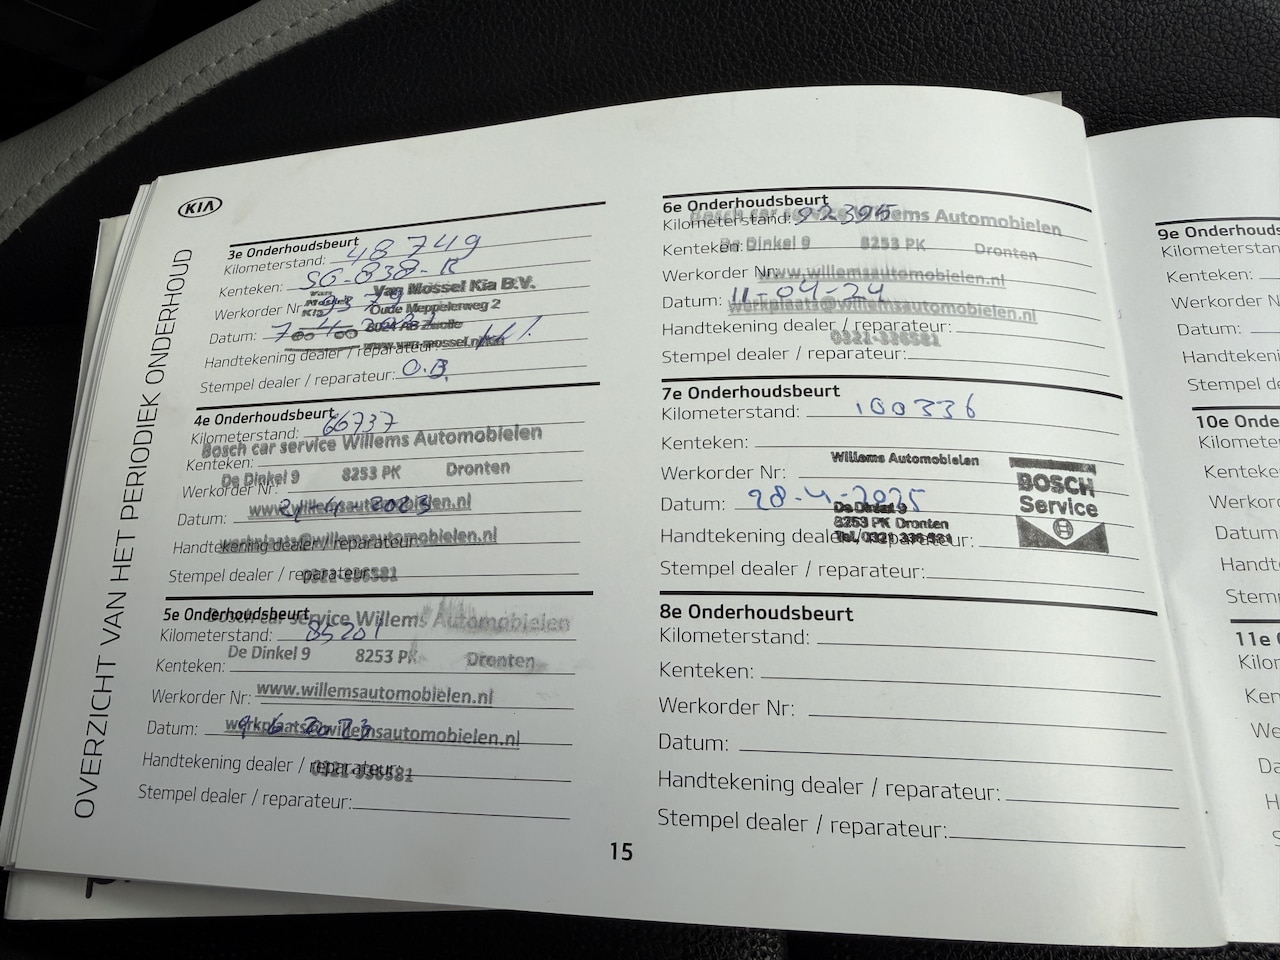 KIA
OVERZICHT VAN HET PERIODIEK ONDERHOUD
3e Onderhoudsbeurt
Kilometerstand: 48749
Kenteken: SG-838-R
Van Mossel Kia B.V.
Werkorder Nr:
Oude Meppelerweg 2
Datum: 7-4
8021 AB Zwolle
Handtekening dealer / reparateur:
www.van-mossel.nl/kia
Stempel dealer / reparateur: O.B.
4e Onderhoudsbeurt
Kilometerstand: 66737
Bosch car service Willems Automobielen
Kenteken:
De Dinkel 9 8253 PK Dronten
Werkorder Nr:
www.willemsautomobielen.nl
Datum: 21-4-2023
Handtekening dealer / reparateur:
werkplaats@willemsautomobielen.nl
Stempel dealer / reparateur:
0321-336581
5e Onderhoudsbeurt
Bosch car service Willems Automobielen
Kilometerstand: 85201
De Dinkel 9 8253 PK Dronten
Kenteken:
Werkorder Nr:
www.willemsautomobielen.nl
Datum: 9-6-2023
werkplaats@willemsautomobielen.nl
Handtekening dealer / reparateur:
0321-336581
Stempel dealer / reparateur:
6e Onderhoudsbeurt
Bosch car service Willems Automobielen
Kilometerstand: 92395
Kenteken:
De Dinkel 9 8253 PK Dronten
Werkorder Nr:
www.willemsautomobielen.nl
Datum: 11-04-24
werkplaats@willemsautomobielen.nl
Handtekening dealer / reparateur:
0321-336581
Stempel dealer / reparateur:
7e Onderhoudsbeurt
Kilometerstand: 100336
Kenteken:
Willems Automobielen
Werkorder Nr:
BOSCH
Service
Datum: 28-4-2025
De Dinkel 9
8253 PK Dronten
Handtekening dealer / reparateur:
Tel. 0321 336 581
Stempel dealer / reparateur:
8e Onderhoudsbeurt
Kilometerstand:
Kenteken:
Werkorder Nr:
Datum:
Handtekening dealer / reparateur:
Stempel dealer / reparateur:
15
9e Onderhouds
Kilometerstan
Kenteken:
Werkorder N
Datum:
Handtekenin
Stempel de
10e Onde
Kilometer
Kenteke
Werkord
Datum
Handt
Stem
11e
Kilor
Ken
We
Da
H
S